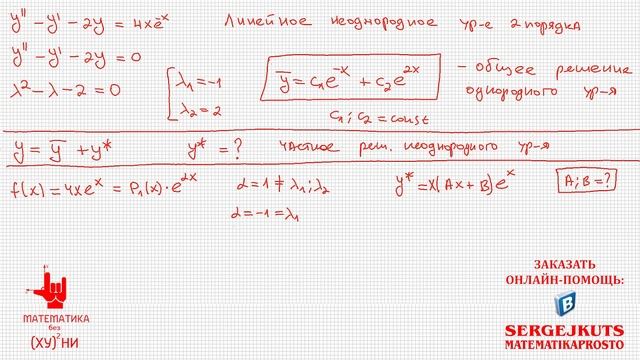 y'' − y' − 2y = 4xe^{-x} Линейное неоднородное ур-е 2 порядка
y'' − y' − 2y = 0
λ² − λ − 2 = 0
λ₁ = −1
λ₂ = 2
ȳ = c₁e^{-x} + c₂e^{2x}
– общее решение
однородного ур-я
c₁; c₂ = const
y = ȳ + y* y* = ? частное реш. неоднородного ур-я
f(x) = 4xe^{x} = P₁(x)·e^{αx} α = 1 ≠ λ₁; λ₂ y* = x(Ax + B)e^{x} A; B = ?
α = −1 = λ₁
МАТЕМАТИКА
без
(ХУ)²НИ
ЗАКАЗАТЬ
ОНЛАЙН-ПОМОЩЬ:
B
SERGEJKUTS
MATEMATIKAPROSTO